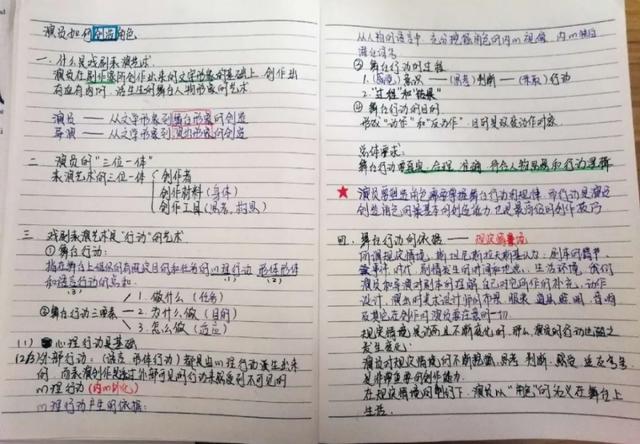 演员如何创造角色
一. 什么是戏剧表演艺术
演员在剧作家所创作出来的文学形象的基础上, 创作出
有血有肉, 活生生的舞台人物形象的艺术
演员 —— 从文学形象到舞台形象的创造
导演 —— 从文学形象到演出形象的创造
二 演员的"三位一体"
表演艺术的三位一体
创作者
创作材料 (身体)
创作工具 (思考、
三 戏剧表演艺术是"行动"的艺术
① 舞台行动:
指在舞台上
心理行动 形体
和语言行动的总和.
(1) (2)
(3)
② 舞台行动三要素
1. 做什么 (任务)
2. 为什么做 (目的)
3. 怎么做 (适应)
(1) 心理行动是基础
(2、3) 外部行动: (语言 形体行动) 都是由心理行动产生出来
的. 而表演创作是透过外部可见的行动来感受到不可见的
心理行动 (内心外化)
心理行动产生的依据:
从人物的语言中, 充分挖掘角色的内心视像, 内心独白
潜台词等
③ 舞台行动的过程
1. (感觉) 意识 —— (思考) 判断 —— (采取) 行动
2. "过程"和"结果"
④ 舞台行动的目的
形成"动作"和"反动作", 目的是改变动作对象.
总体要求:
舞台行动要真实, 合理, 准确, 符合人物思想和行动逻辑
★ 演员要塑造角色需要掌握舞台行动的规律, 而行动是演员
创造角色的最基本的创造能力也是最高级的创作技巧
四. 舞台行动的依据 —— 规定情境
所谓规定情境, 斯坦尼斯拉夫斯基认为: 剧本的情节,
事件, 时代, 剧情发生的时间和地点, 生活环境, 我们
演员和导演对剧本的理解, 自己对它所作的补充, 动作
设计, 演出时美术设计师的布景 服装 道具 照明, 音响
及其它在创作时演员要注意的一切
规定情境是动态且不断变化的, 那么, 演员的行动也随之
发生变化.
演员对规定情境的不断
思考 判断,
是非常重要的创作能力.
在规定情境的制约下, 演员以"角色"的名义在舞台上
生活.